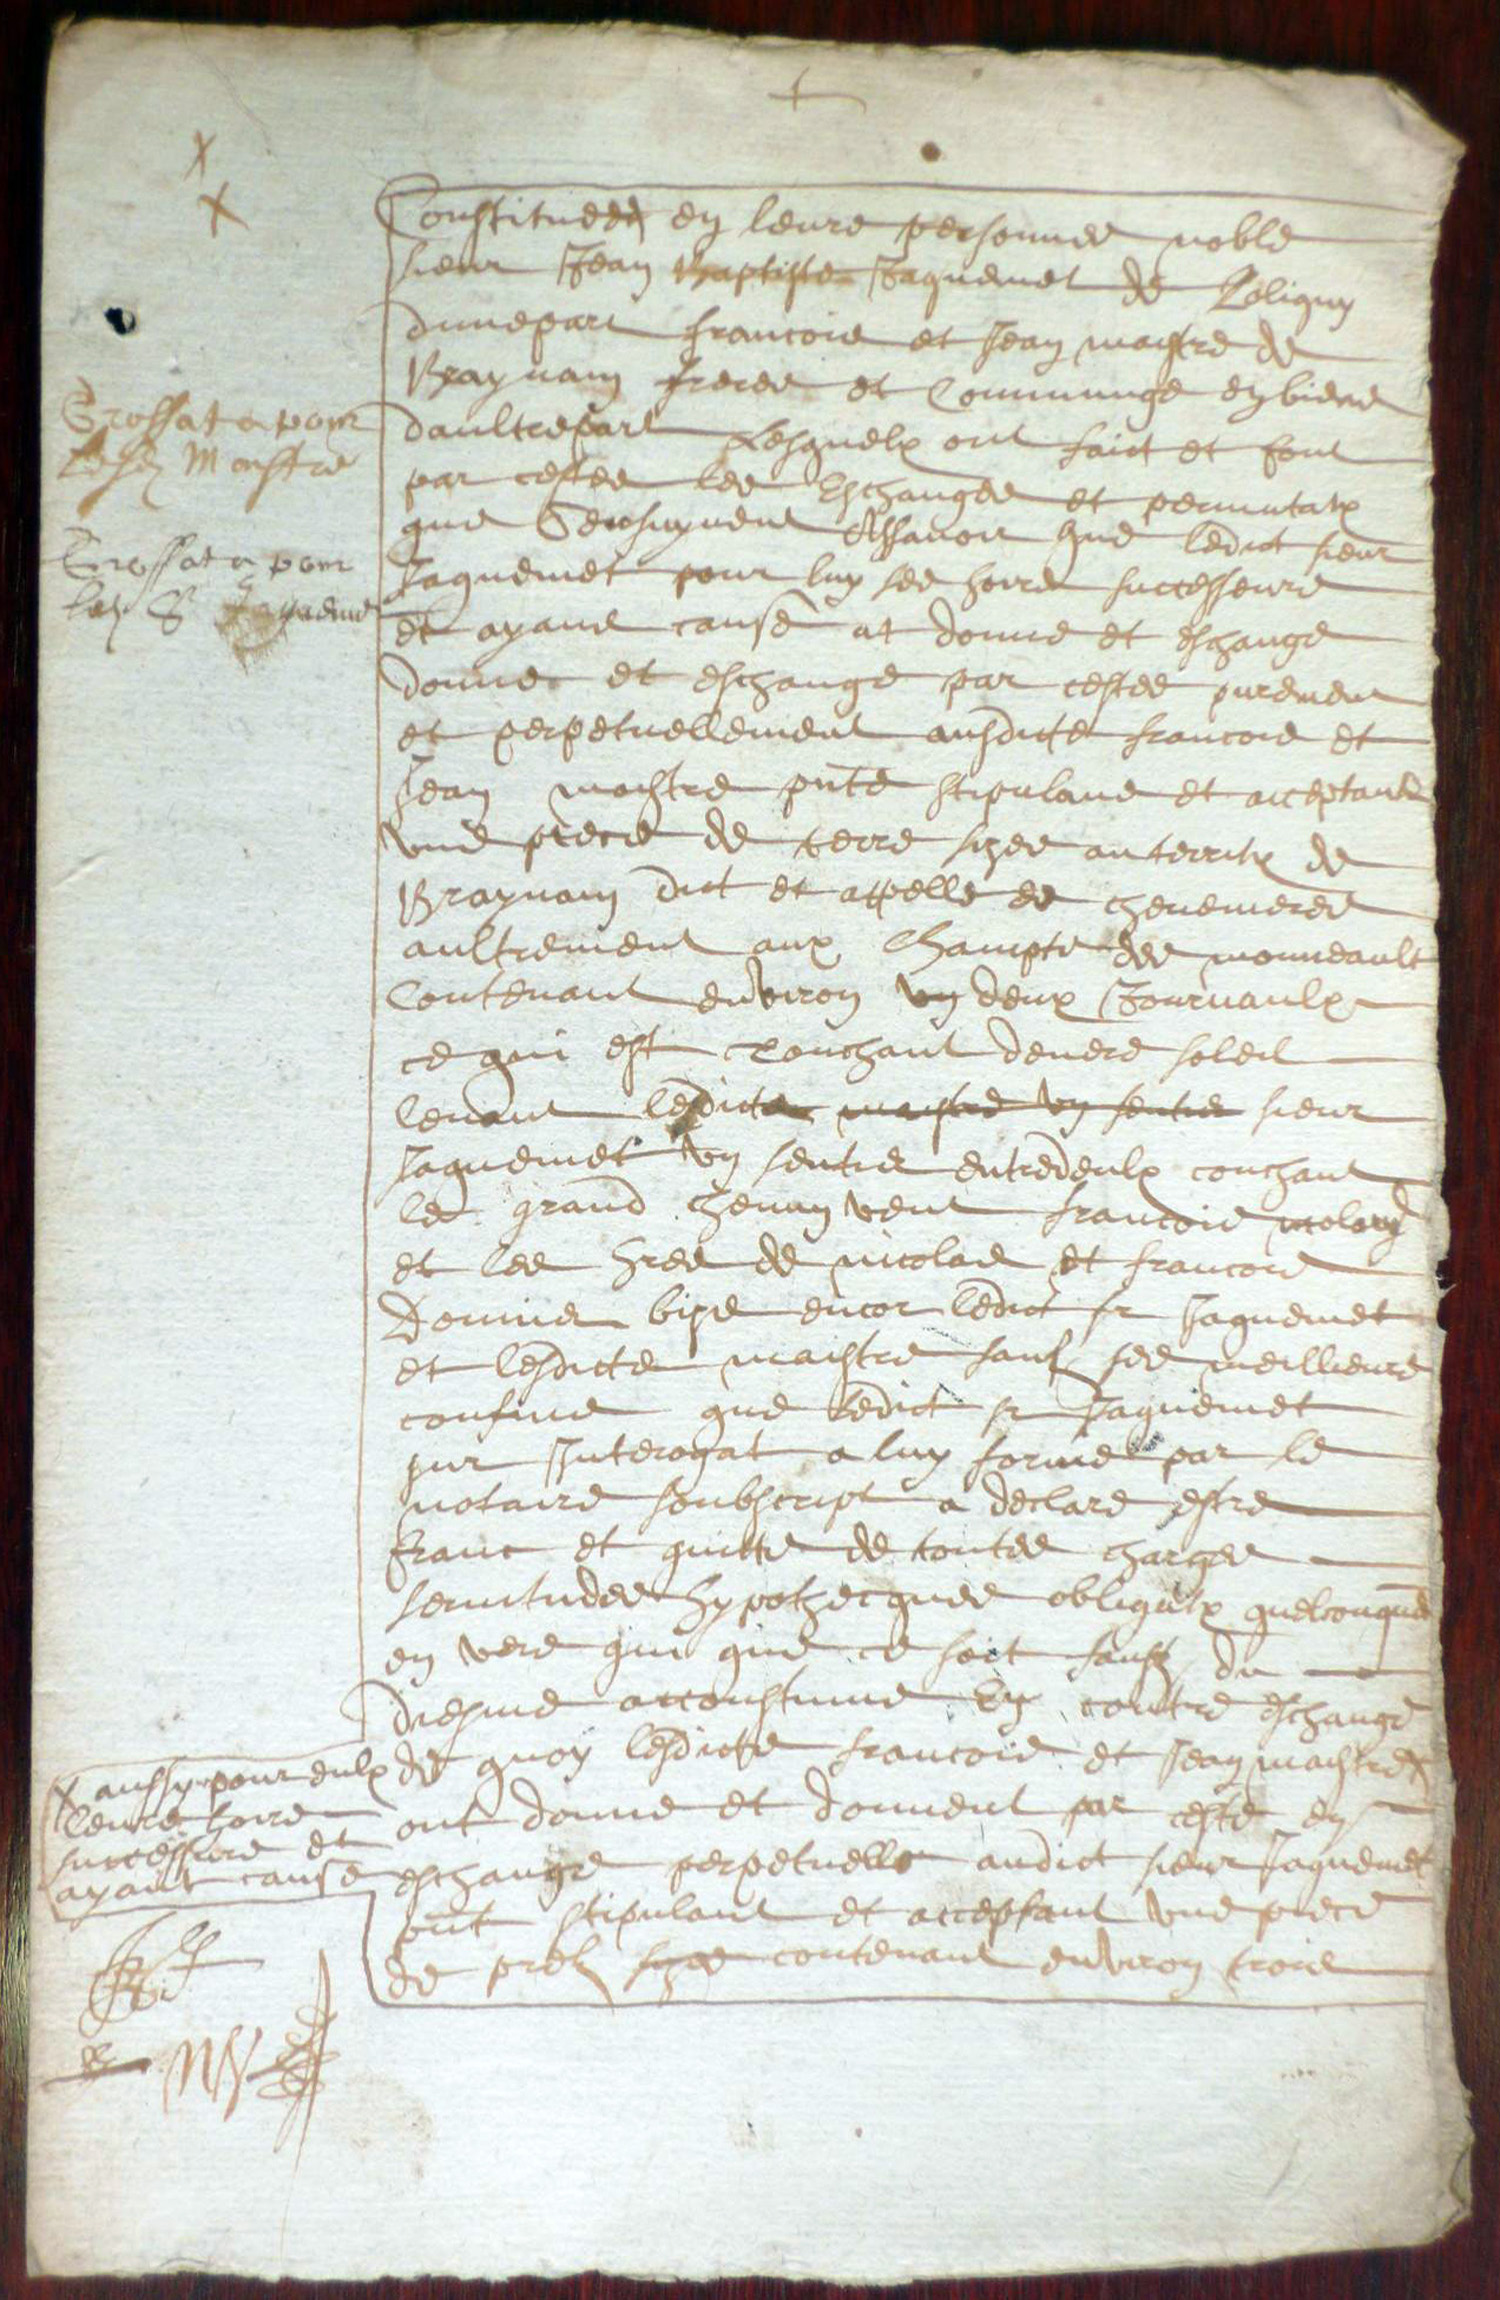 Constitueez en leurs personnes noble
sieur Jean Baptiste Jaquemet de Poligny
dunepart francois et Jean maistre de
Braynain freres et Communge en biens
daultrepart Lesquelx ont faict et font
par cestes les Eschanges et permutatx
que Sensuyvent Assavoir que ledict sieur
Jaquemet pour luy ses hoirs successeurs
et ayans cause at donne et eschange
donne et eschange par cestes purement
et perpetuellement ausdicts francois et
Jean maistre pnts stipulans et acceptants
une piece de terre sizee au territx de
Braynain dict et appelle es
aultrement aux Champts des
Contenant environ un deux Journaulx
ce qui est touchant devers soleil
levant lesdicts maistre un sentier sieur
Jaquemet un sentier entredeulx couchant
le grand chemin vent francois
et les hres de nicolas et francois
bize encor ledict sr Jaquemet
et lesdicts maistre sauf ses meillieurs
confins que ledict sr Jaquemet
sur Interogat a luy forme par le
notaire soubscript a declare estre
franc et quitte de toutes charges
servitudes hypothecques obligatx quelconques
en vers qui que ce soit saufz du
diesme accoustume En contre eschange
de quoy lesdicts francois et Jean maistre x
ont donne et donnent par ceste en
eschange perpetuelle audict sieur Jaquemet
pnt stipulant et acceptant une piece
de prel size contenant environ trois
Grossat a pour
Lesd Maistre
Grossat a pour
led S Jaquemet
x aussy pour eulx
leurs hoirs
successeurs et
ayant cause